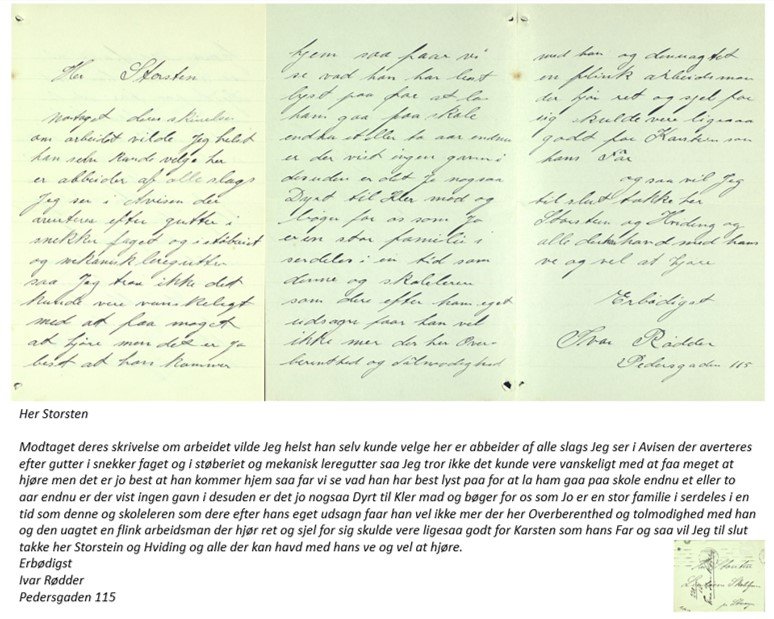 Her Storsten
Motaget deres skrivelse
om arbeidet vilde Jeg helst
han selv kunde velge her
er abbeider af alle slags
Jeg ser i Avisen der
averteres efter gutter i
snekker faget og i støberiet
og mekanisk leregutter
saa Jeg tror ikke det
kunde vere vanskelegt
med at faa meget
at hjøre men det er jo
best at han kommer
hjem saa faar vi
se vad han har best
lyst paa for at la
ham gaa paa skole
endnu et eller to aar endnu
er der vist ingen gavn i
desuden er det jo nogsaa
Dyrt til Kler mad og
bøger for os som Jo
er en stor familie i
serdeles i en tid som
denne og skoleleren
som dere efter hans eget
udsagn faar han vel
ikke mer der her Over-
berenthed og tolmodighed
med han og den uagtet
en flink arbeidsman
der hjør ret og sjel for
sig skulde vere ligesaa
godt for Karsten som
hans Far
og saa vil Jeg
til slut takke her
Storsten og Hviding og
alle der kan havd med hans
ve og vel at hjøre
Erbødigst
Ivar Rødder
Pedersgaden 115
Her Storsten
Modtaget deres skrivelse om arbeidet vilde Jeg helst han selv kunde velge her er abbeider af alle slags Jeg ser i Avisen der averteres
efter gutter i snekker faget og i støberiet og mekanisk leregutter saa Jeg tror ikke det kunde vere vanskeligt med at faa meget at
hjøre men det er jo best at han kommer hjem saa far vi se vad han har best lyst paa for at la ham gaa paa skole endnu et eller to
aar endnu er der vist ingen gavn i desuden er det jo nogsaa Dyrt til Kler mad og bøger for os som Jo er en stor familie i serdeles i en
tid som denne og skoleleren som dere efter hans eget udsagn faar han vel ikke mer der her Overberenthed og tolmodighed med han
og den uagtet en flink arbeidsman der hjør ret og sjel for sig skulde vere ligesaa godt for Karsten som hans Far og saa vil Jeg til slut
takke her Storstein og Hviding og alle der kan havd med hans ve og vel at hjøre.
Erbødigst
Ivar Rødder
Pedersgaden 115